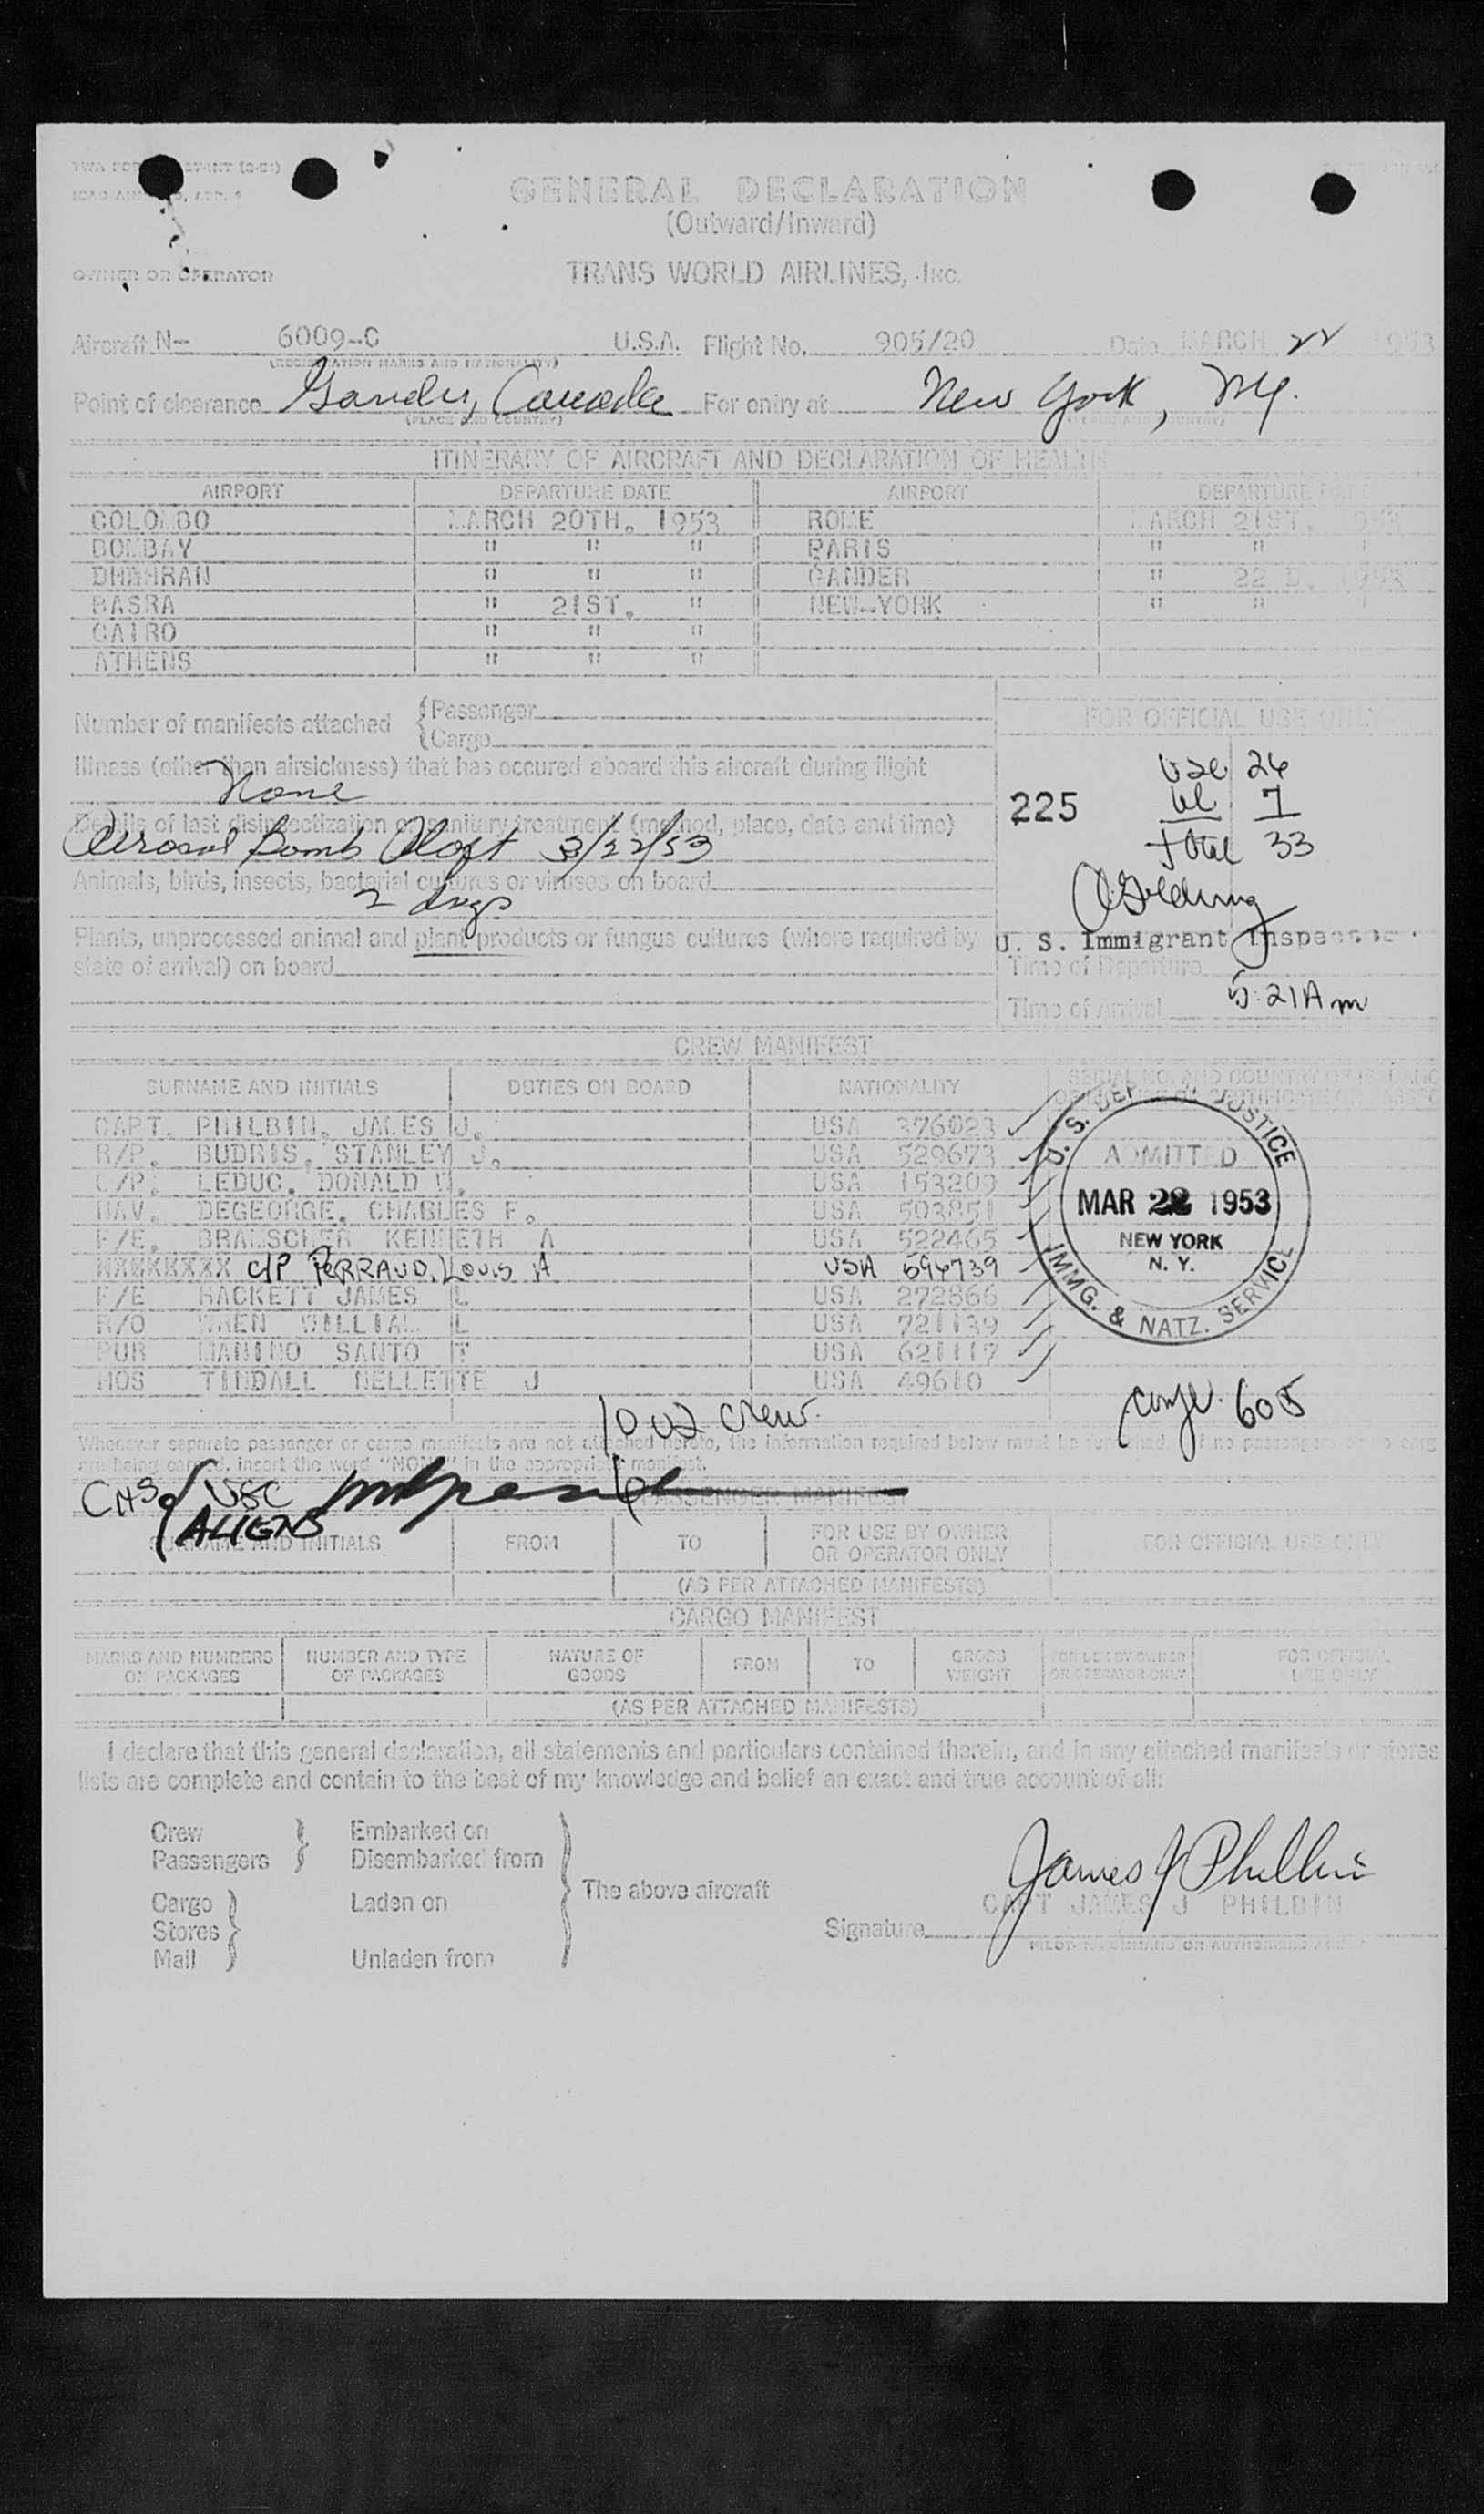 GENERAL DECLARATION
(Outward/Inward)
OWNER OR OPERATOR TRANS WORLD AIRLINES, Inc.
Aircraft N- 6009-C U.S.A. Flight No. 905/20 Date MARCH 22 1953
(REGISTRATION MARKS AND NATIONALITY)
Point of clearance Gander, Canada For entry at New York, NY.
(PLACE AND COUNTRY)
ITINERARY OF AIRCRAFT AND DECLARATION OF HEALTH
AIRPORT DEPARTURE DATE AIRPORT DEPARTURE DATE
COLOMBO MARCH 20TH. 1953 ROME MARCH 21ST. 1953
BOMBAY " " " PARIS " " "
DHAHRAN " " " GANDER " 22 D. 1953
BASRA " 21ST. " NEW-YORK " " "
CAIRO " " "
ATHENS " " "
Number of manifests attached {Passenger
{Cargo
FOR OFFICIAL USE ONLY
Illness (other than airsickness) that has occured aboard this aircraft during flight
None
225
USC 26
7
total 33
Details of last disinsectization or sanitary treatment (method, place, date and time)
Aerosol Bomb Aloft 3/22/53
Animals, birds, insects, bacterial cultures or viruses on board
2 dogs
Plants, unprocessed animal and plant products or fungus cultures (where required by
state of arrival) on board
U. S. Immigrant Inspector.
Time of Departure
Time of Arrival 5:21 Am
CREW MANIFEST
SURNAME AND INITIALS DUTIES ON BOARD NATIONALITY
CAPT. PHILBIN, JAMES J. USA 376023
R/P. BUDRIS, STANLEY J. USA 529673
C/P. LEDUC, DONALD W. USA 153209
NAV. DEGEORGE, CHARLES F. USA 503851
F/E. BRAMSCHER KENNETH A USA 522465
C/P PERRAUD, LOUIS A USA 594739
F/E HACKETT JAMES L USA 272866
R/O WREN WILLIAM L USA 721139
PUR MANINO SANTO T USA 621117
HOS TINDALL NELLETTE J USA 49610
U.S. DEPT. OF JUSTICE
ADMITTED
MAR 22 1953
NEW YORK
N. Y.
IMMG. & NATZ. SERVICE
10 US crew.
605
Whenever separate passenger or cargo manifests are not attached hereto, the information required below must be furnished. If no passengers or no cargo
are being carried, insert the word "NONE" in the appropriate manifest.
USC
ALIENS
PASSENGER MANIFEST
SURNAME AND INITIALS FROM TO FOR USE BY OWNER OR OPERATOR ONLY FOR OFFICIAL USE ONLY
(AS PER ATTACHED MANIFESTS)
CARGO MANIFEST
MARKS AND NUMBERS ON PACKAGES NUMBER AND TYPE OF PACKAGES NATURE OF GOODS FROM TO GROSS WEIGHT FOR USE BY OWNER OR OPERATOR ONLY FOR OFFICIAL USE ONLY
(AS PER ATTACHED MANIFESTS)
I declare that this general declaration, all statements and particulars contained therein, and in any attached manifests or stores
lists are complete and contain to the best of my knowledge and belief an exact and true account of all:
Crew Embarked on
Passengers Disembarked from
Cargo Laden on The above aircraft
Stores
Mail Unladen from
James J Philbin
CAPT JAMES J PHILBIN
Signature